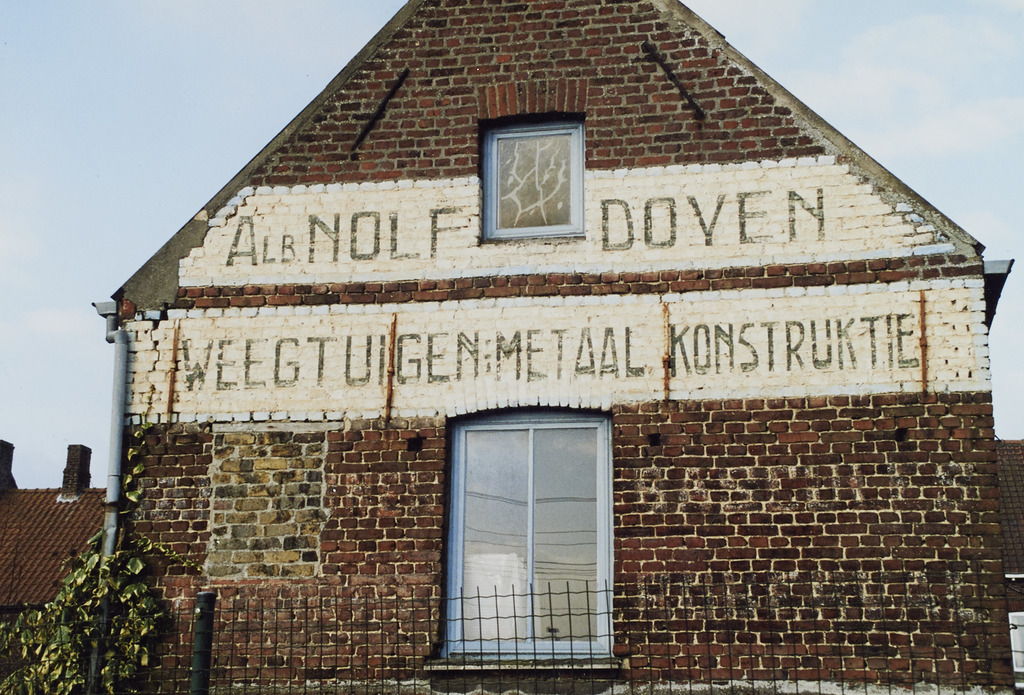 ALB NOLF DOYEN
WEEGTUIGEN: METAAL KONSTRUKTIE